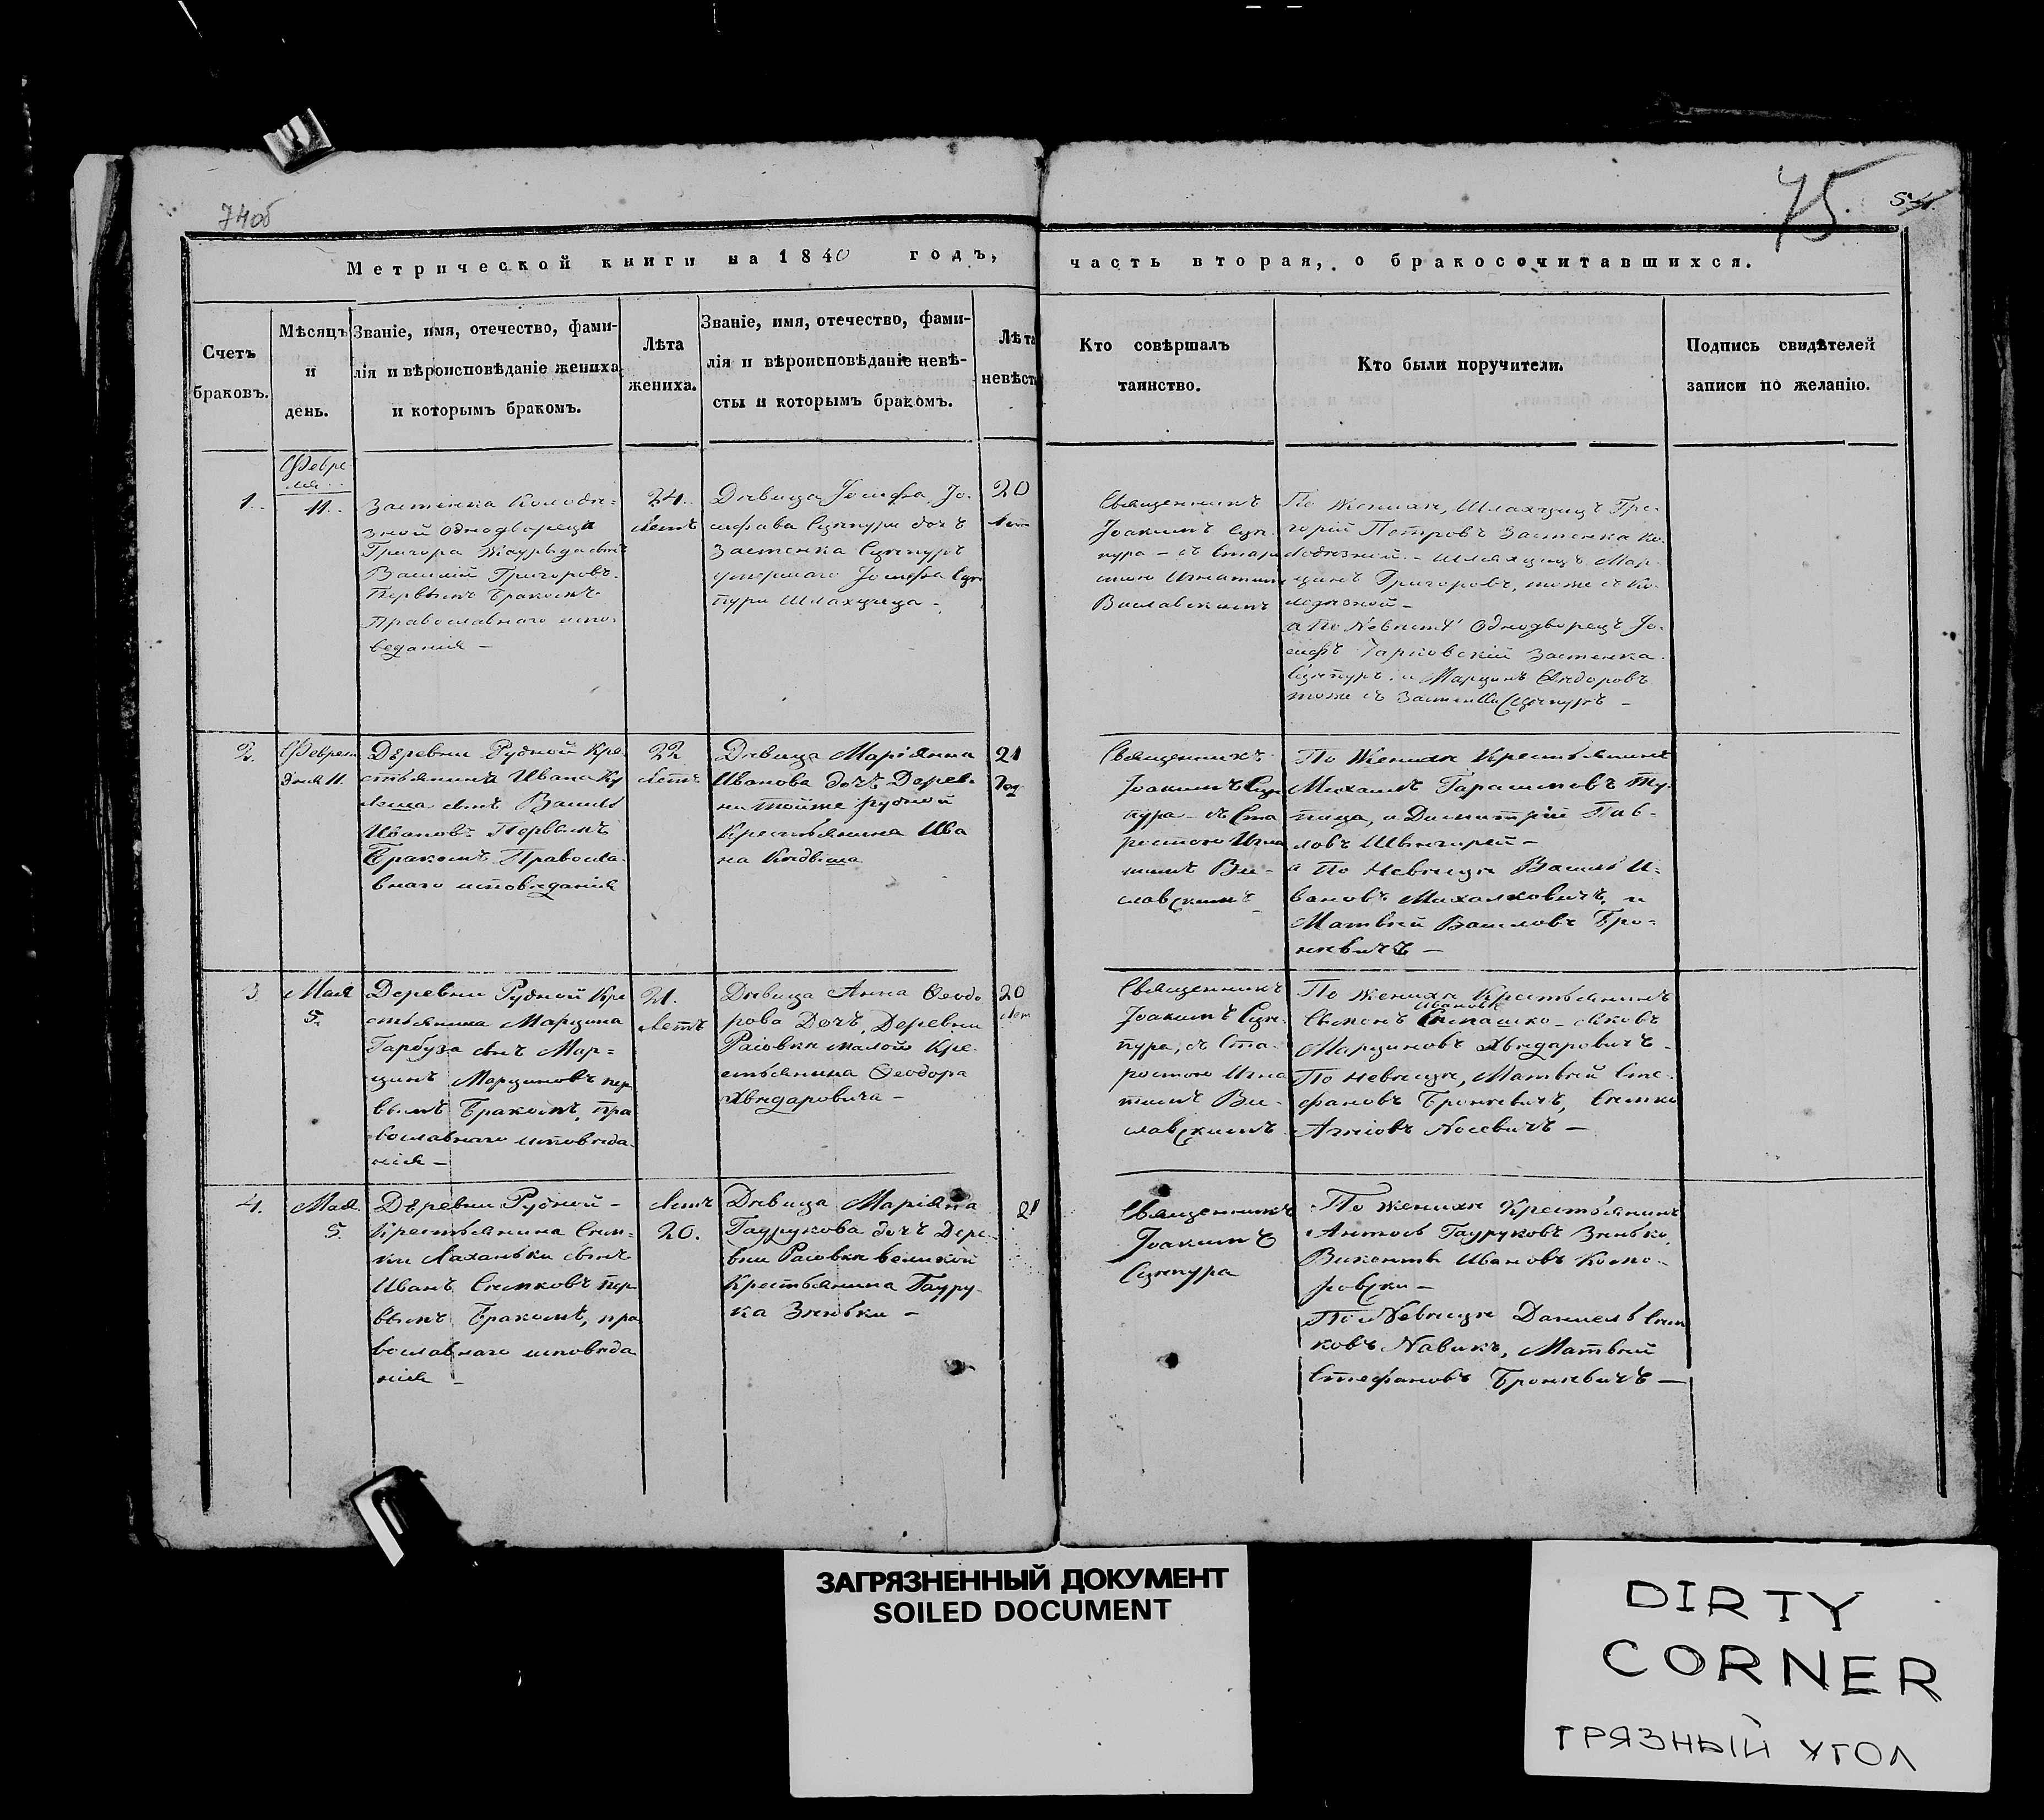 74об
75.
Метрической книги на 1840 годъ, часть вторая, о бракосочитавшихся.
Счетъ браковъ.
Мѣсяцъ и день.
Званіе, имя, отечество, фами-
лія и вѣроисповѣданіе жениха
и которымъ бракомъ.
Лѣта жениха.
Званіе, имя, отечество, фами-
лія и вѣроисповѣданіе невѣ-
сты и которымъ бракомъ.
Лѣта невѣст
Кто совѣршалъ
таинство.
Кто были поручители.
Подпись свидѣтелей
записи по желанію.
1.
11.
Застенка Колодѣ=
зной Однодворца
Григора
Василій Григоровъ.
Первымъ Бракомъ
Православнаго испо-
веданія —
24.
Летъ
Дѣвица Іосифа Іо-
сифава дочъ
Застенка
умершаго Іосифа
Шляхцица —
20
Священникъ
Іоакимъ
пура — съ Старо
стою Игнатим
Виславскимъ
По Женихѣ, Шляхцицъ Гри-
горій Петровъ Застенка Ко
лодѣзной — Шляхцицъ Мар-
цинъ Григоровъ, тоже съ Ко-
лодѣзной —
а По Невѣстѣ Однодворецъ Іо-
сифъ Застенка
и Марцинъ
тоже съ
2.
11.
Деревни Рудной Кре
стьянина Ивана Ку
сынъ Василь
Ивановъ Первымъ
Бракомъ Правосла-
внаго исповѣданія
22
Летъ
Дѣвица Маріянна
Иванова дочъ Дерев-
ни тойже рудной
Крестьянина Ива
на
21
Год
Священникъ
Іоакимъ
пура — съ Ста
ростою Игна
тимъ Ви-
славскимъ
По Женихѣ Крестьянинъ
Михаилъ Гарасимовъ Ту-
пица, и Димитрій Пав-
ловъ
а По Невѣсцѣ Василь И-
вановъ Михалковичъ, и
Матвѣй Василовъ Бро-
нѣвичъ —
3
Мая
5.
Деревни Рудной Кре
стьянина Марцина
Гарбуза сынъ Мар=
цинъ Марциновъ пер
вымъ Бракомъ, пра
вославнаго исповѣда-
нія —
21.
Летъ
Дѣвица Анна Ѳеодо
рова Дочъ, Деревни
Расовки малой Кре-
стьянина Ѳеодора
Хвѣдаровича —
20
Лет
Священникъ
Іоакимъ
пура, съ Ста-
ростою Игна
тимъ Ви-
славскимъ
По Женихѣ Крестьянинъ
Ивановъ
Сымонъ
Марциновъ Хвѣдаровичъ —
По Невѣсцѣ, Матвѣй Сте-
фановъ Бронѣвичъ,
Носевичъ —
4.
Мая
5.
Деревни Рудной —
Крестьянина Сым=
ки сынъ
Иванъ Сымковъ пер
вымъ Бракомъ, пра
вославнаго исповѣда
нія —
Летъ
20.
Дѣвица Маріяна
Гаурукова дочъ Дере-
вни Расовки великой
Крестьянина Гауру-
ка Зѣньки —
21
Священникъ
Іоакимъ
По Женихѣ Крестьянинъ
Антось Гауруковъ Зѣнько,
Викентъ Ивановъ
По Невѣсцѣ Даниель Сым
ковъ Навикъ, Матвѣй
Стефановъ Бронѣвичъ —
ЗАГРЯЗНЕННЫЙ ДОКУМЕНТ
SOILED DOCUMENT
DIRTY
CORNER
ГРЯЗНЫЙ УГОЛ